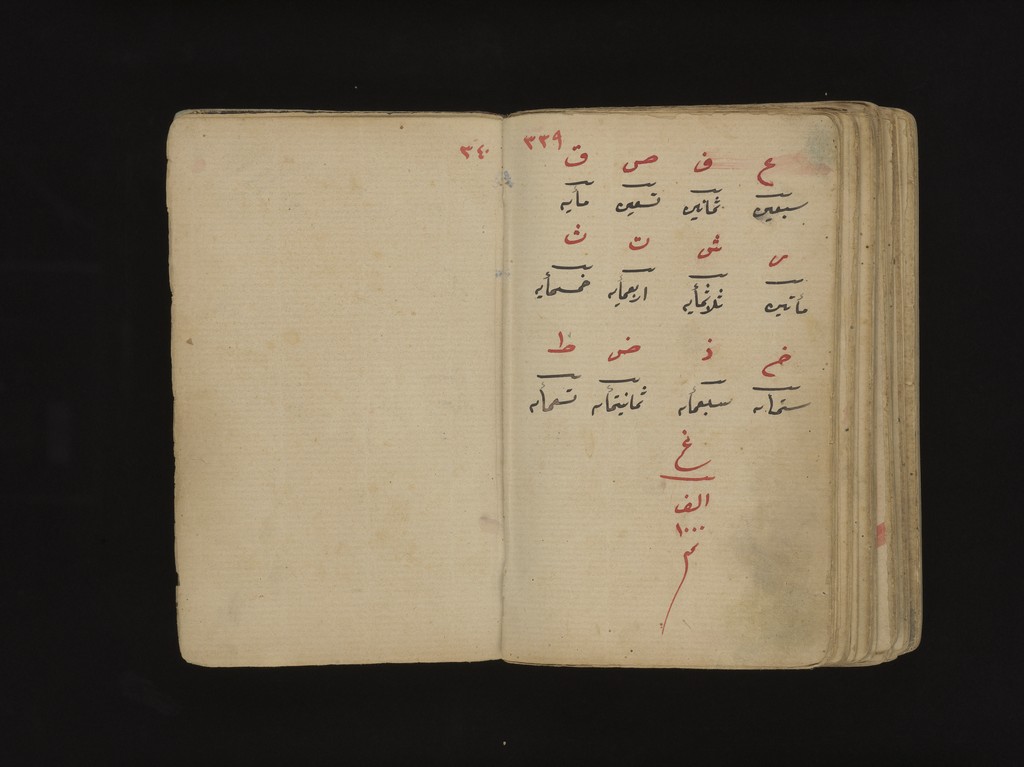 ٣٣٩
ع ف ص ق
سبعين ثمانين تسعين مأيه
س ش ت ث
مأتين ثلاثمأيه اربعمأيه خمسمأيه
خ ذ ض ط
ستمأيه سبعمأيه ثمانيتمأيه تسعمأيه
غ
الف
١٠٠٠
تم
٣٤٠